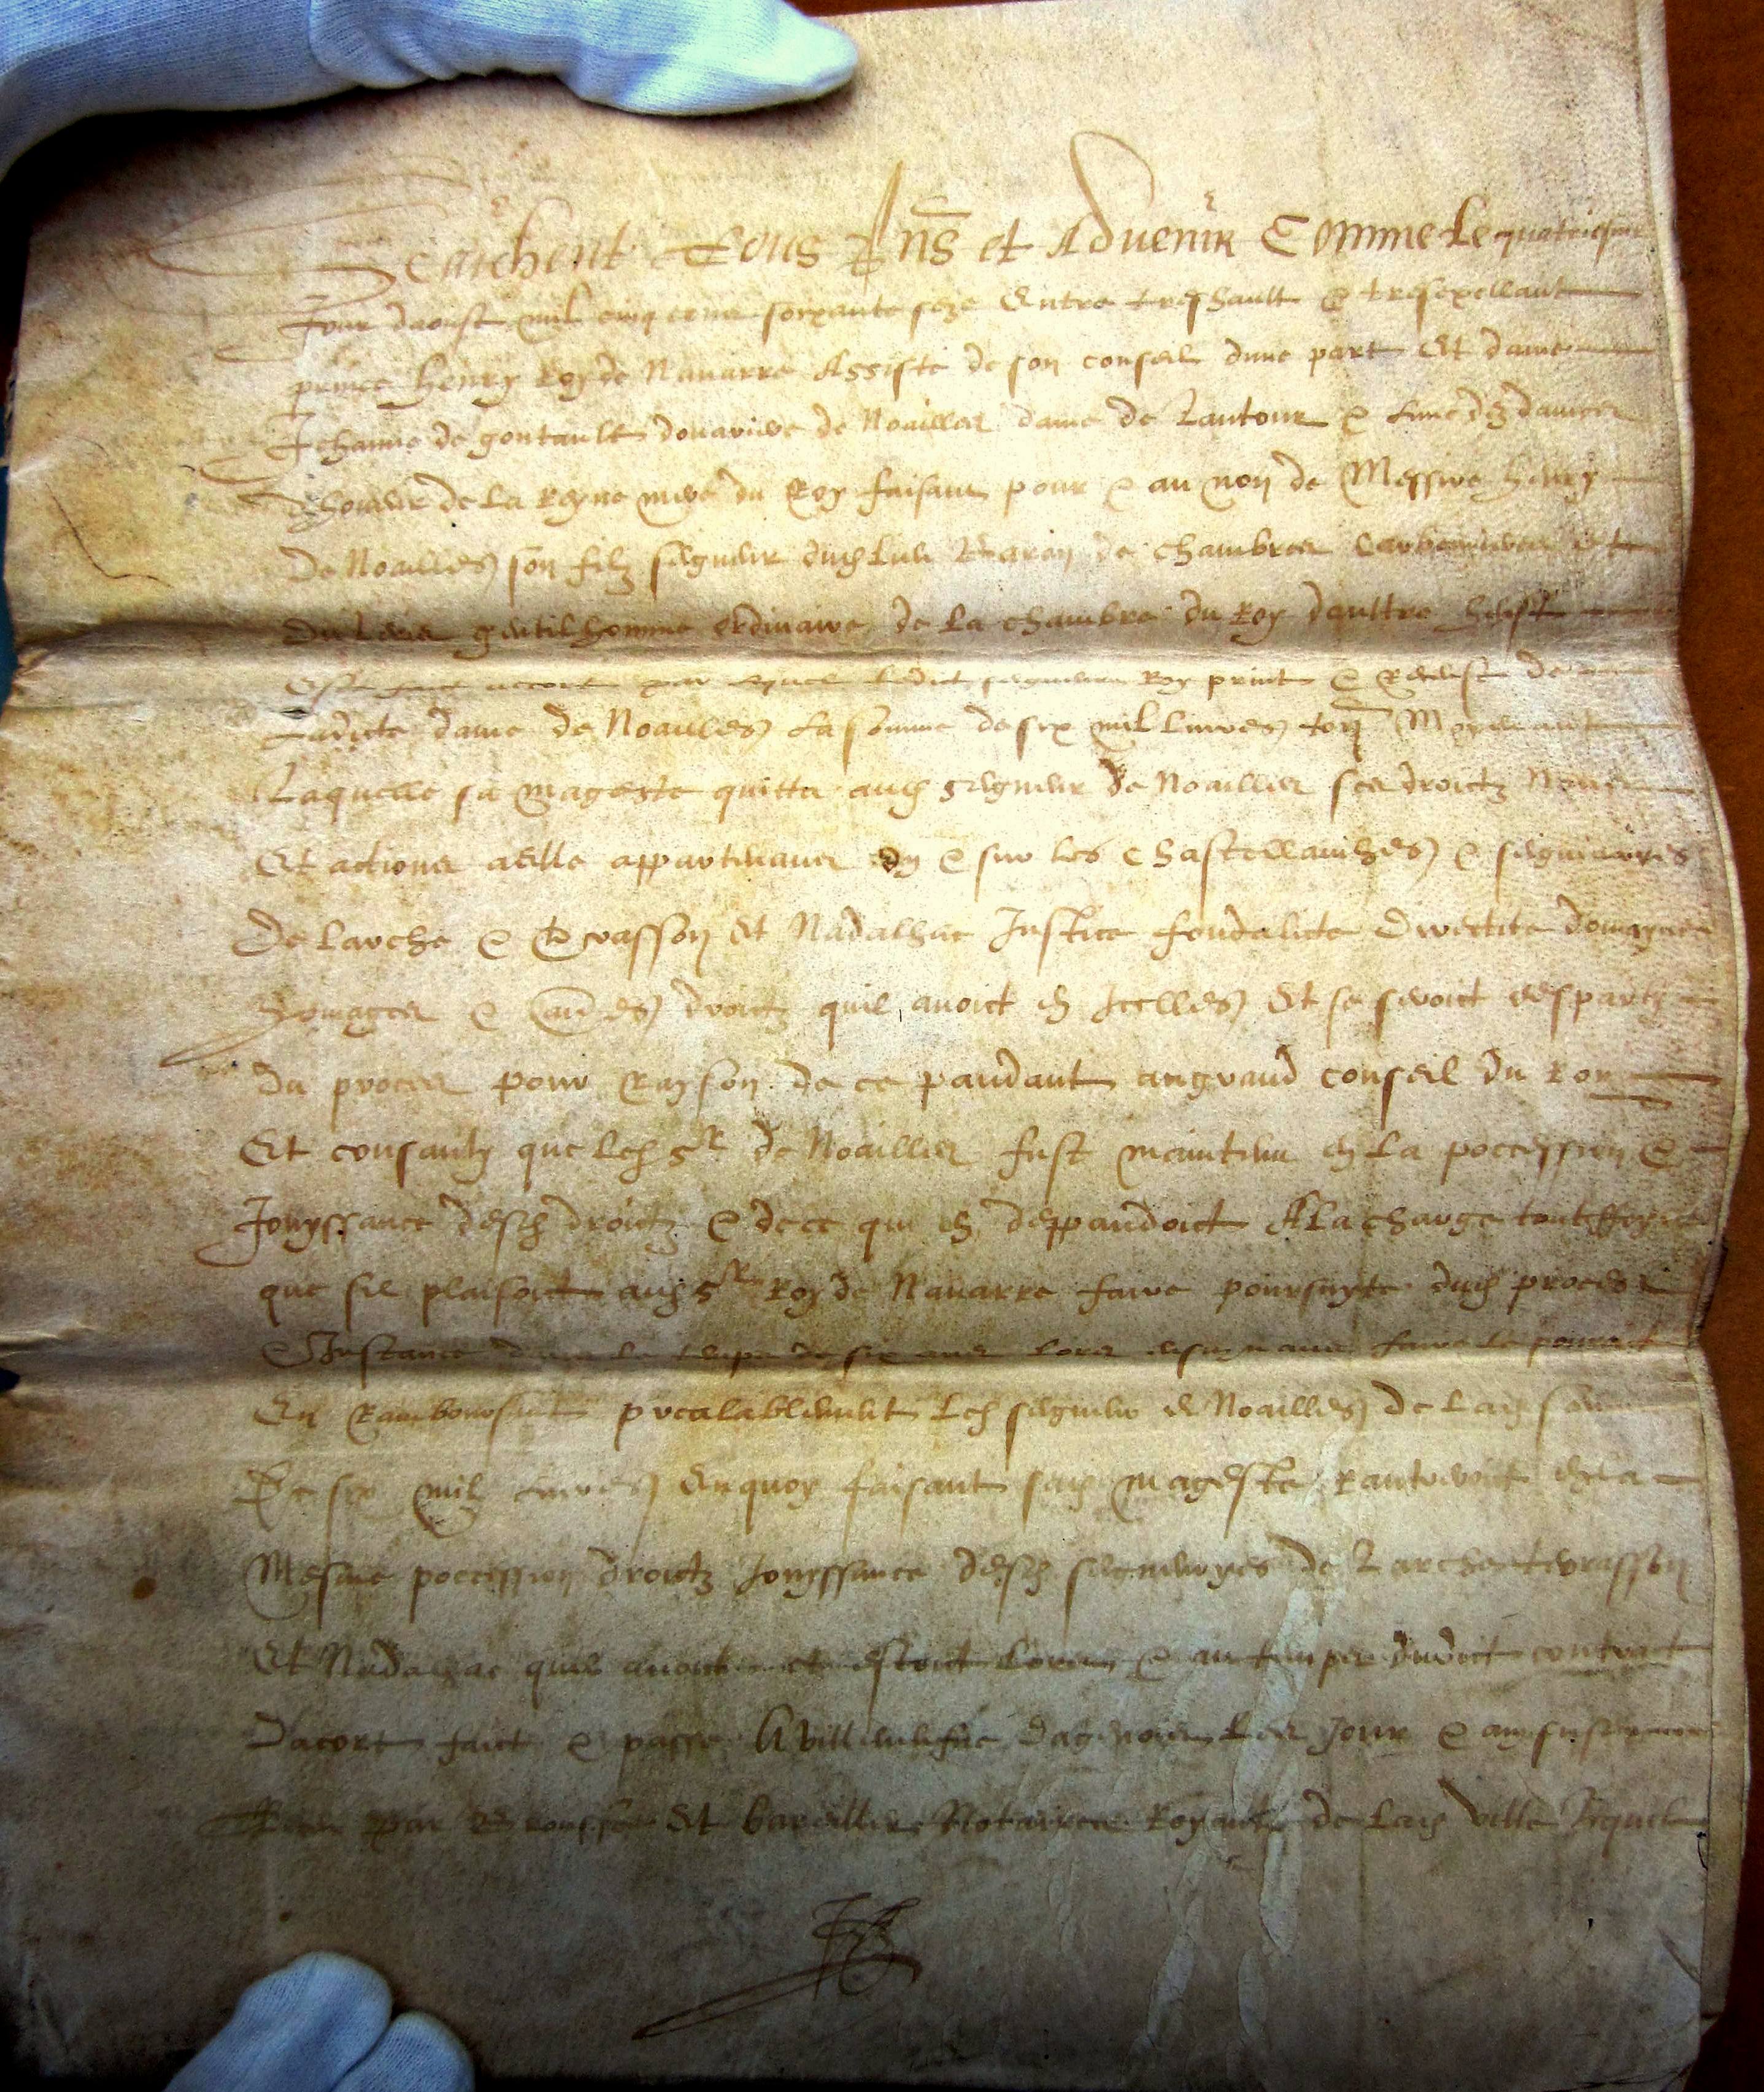 Scaichent tous pns et Advenir Comme le quatriesme
Jour daoust mil cinq cens soixante seze Entre treshault & tresexellant
prince henry Roy de Navarre Assiste de son conseil dune part Et dame
Jehanne de gontault douarire de Noailles dame de Lantour & lune des dames
dhoneur de la Reyne mere du Roy faisant pour & au non de Messire henry
De Noailles son filz seigneur dud lieu Baron de Chambres
gentilhomme ordinaire de la chambre du Roy dauttre
accort par lequel ledict seigneur Roy print & de
Ladicte dame de Noailles La somme de six mil livres torn Moyenant
Laquelle sa mageste quitta aud seigneur de Noailles ses droictz Noms
Et actions a elle appartenans en & sur les chastellainhes & seigneuryes
De larche & Terrasson Et Nadalhac Justice fondalite directite domaynes
homages & aues droictz quil avoict en Icelles Et se despartz
du proces pour Rayson de ce pandant au grand conseil du Roy
Et consanty que led sr de Noailles fust maintenu en la pocession &
Jouyssance desd droictz & de ce qui en deppandoict A la charge touteffoys
que sil plaisoict aud sr Roy de Navarre faire poursuyte dud proces
& Instance dans le temps de six ans lors faire le pouroict
En Rambourssant prealablement led seigneur de Noailles de lad somme
De six mil livres En quoy faisant sad mageste Rantreroict en la
Mesme pocession droictz Jouyssance desd seigneuryes de Larche terrasson
Et Nadalhac quil avoict et estoict lors & au temps dudict contract
Dacort faict & passe A Villenefve dagenois les Jour & an susd
par Et Notaires Royaulx de lad ville